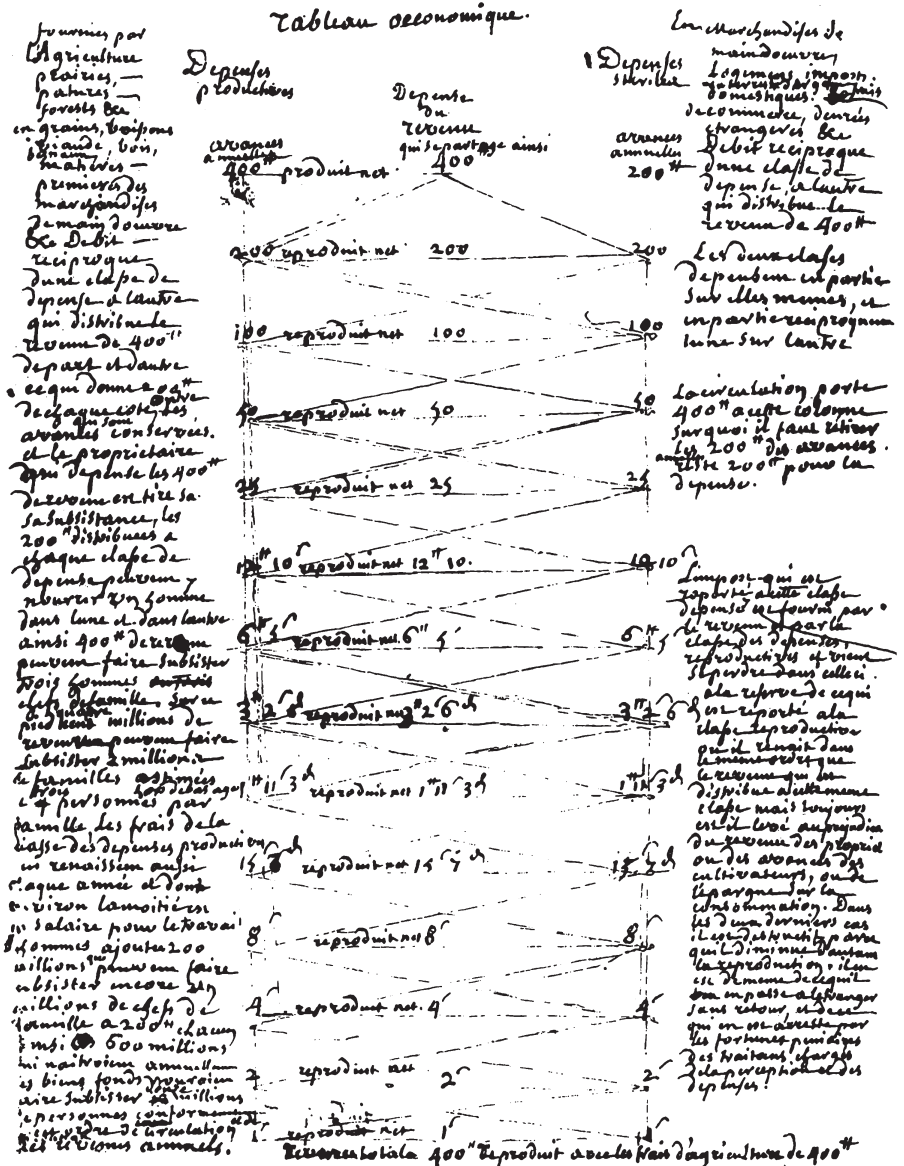 Tableau oeconomique.
fournies par
l'Agriculture
prairies, —
patures —
forests &c
en grains, boissons
viande, bois,
matieres —
premieres des
marchandises
de main doeuvre
&c Debit —
reciproque
dune classe de
depense a lautre
qui distribue le
revenu de 400ᵗᵗ
depart et dautre
ce qui donne
de chaque coté, les
avances conservées.
et le proprietaire
qui depense les 400ᵗᵗ
de revenu en tire sa
sa subsistance, les
200ᵗᵗ distribuées a
chaque classe de
depense peuvent y
nourrir un homme
dans lune et dans lautre
ainsi 400ᵗᵗ de revenu
peuvent faire subsister
trois hommes
chefs de famille, sur ce
pied millions de
revenu peuvent faire
subsister 2 millions
de familles estimées
a 4 personnes par
famille. Les frais de la
classe des depenses productives
qui renaissent aussi
chaque année et dont
environ la moitié est
en salaire pour le travail
d'hommes ajoute 200
millions peuvent faire
subsister encore un
millions de chefs de
famille a 200ᵗᵗ chacun
ainsi 600 millions
qui naitroient annuellem
des biens fonds pouroient
faire subsister millions
de personnes conformement
a cet ordre de circulation
des revenus annuels.
Depenses
productives
avances
annuelles
400ᵗᵗ produit net
Depense
du
revenu
qui se partage ainsi
400ᵗᵗ
Depenses
steriles
avances
annuelles
200ᵗᵗ
200 reproduit net 200 200
100 reproduit net 100 100
50 reproduit net 50 50
25 reproduit net 25 25
12ᵗᵗ 10ˢ reproduit net 12ᵗᵗ 10. 10 10ˢ
6ᵗᵗ 5ˢ reproduit net. 6ᵗᵗ 5ˢ 6ᵗᵗ 5ˢ
3ᵗᵗ 2ˢ 6ᵈ reproduit net 3ᵗᵗ 2ˢ 6ᵈ 3ᵗᵗ 2ˢ 6ᵈ
1ᵗᵗ 11ˢ 3ᵈ reproduit net 1ᵗᵗ 11ˢ 3ᵈ 1ᵗᵗ 11ˢ 3ᵈ
reproduit net 15ˢ 7ᵈ
8ˢ reproduit net 8ˢ 8ˢ
4ˢ reproduit net. 4ˢ 4ˢ
2 reproduit net 2ˢ 2ˢ
1ˢ reproduit net 1ˢ 1ˢ
revenu total a 400ᵗᵗ reproduit avec les frais d'agriculture de 400ᵗᵗ
En Marchandises de
main doeuvre,
Logemens, impost.
interets d'argent
domestiques.
de commerce, denrées
etrangeres &c
Debit reciproque
dune classe de
depense, a lautre
qui distribue le
revenu de 400ᵗᵗ
Les deux classes
depensent en partie
sur elles memes, et
en partie reciproquem
lune sur lautre
La circulation porte
400ᵗᵗ a cette colonne
sur quoi il faut retirer
les 200ᵗᵗ des avances
annuelles
reste 200ᵗᵗ pour la
depense.
L'impost qui est
reporté a cette classe
depense est fourni par
le revenu et par la
classe des depenses,
reproductives et vient
se perdre dans celle ci.
a la reserve de ce qui
est reporté a la
classe reproductive
ou il renait dans
le meme ordre que
le revenu qui est
distribué a cette meme
classe mais toujours
est il levé au prejudice
du revenu des propriet
ou des avances des
cultivateurs, ou de
l'epargne sur la
consommation. Dans
les deux derniers cas
il est destructif, parce
qu'il diminue d'autant
la reproduction. il en
est de meme de ce qu'il
en passe a letranger
sans retour, et de ce
qui en est arresté par
les fortunes pecuniaires
des traitans chargés
de la perception et des
depenses.